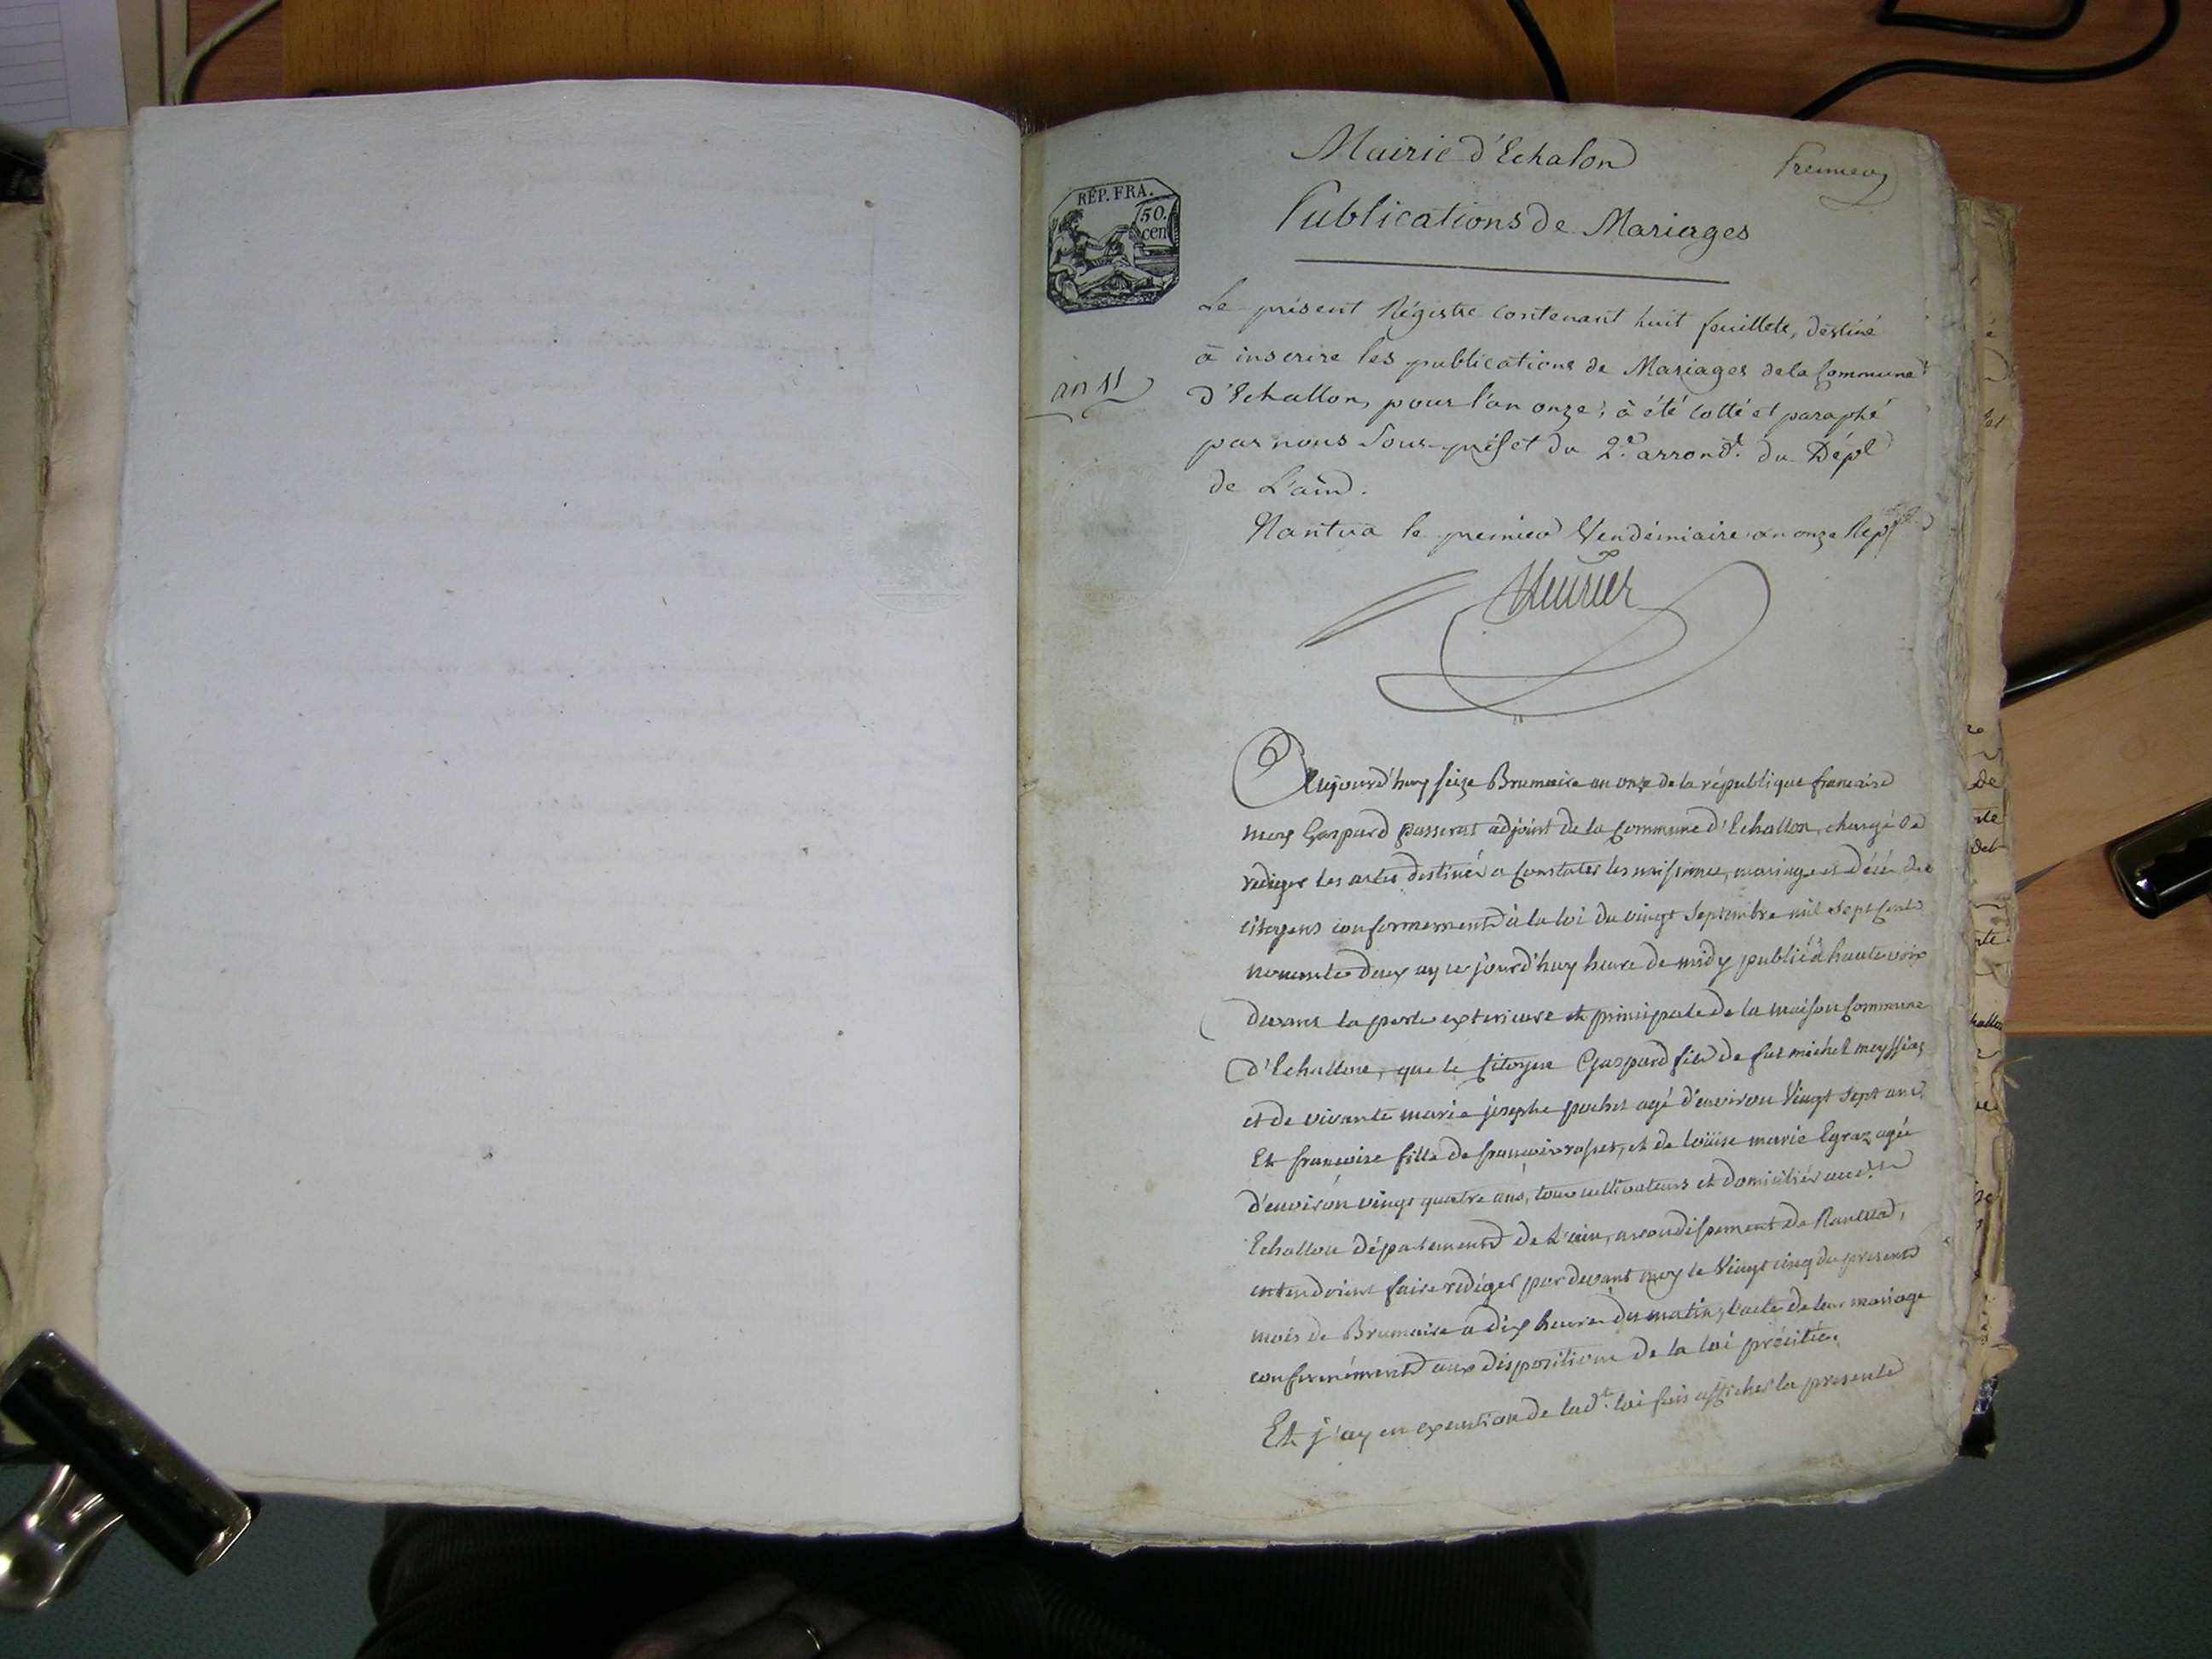 Mairie d'Echalon
Premier
Publications de Mariages
RÉP. FRA.
50.
cen
Le présent Régistre contenant huit feuillets, destiné
an 11
à inscrire les publications de Mariages de la Commune
d'Echallon, pour l'an onze, à été cotté et paraphé
par nous Sous-préfet du 2.e arrond.t du Dép.t
de L'ain.
Nantua le premier Vendémiaire an onze Rép.
Aujourd'huy seize Brumaire an onze de la république francaise
moy Gaspard passerat adjoint de la Commune d'Echallon, chargé de
rediger les actes destinés a Constater les naissances, mariages et décés des
citoyens conformement à la loi du vingt Septembre mil sept Cents
nonante deux ay ce jourd'huy heure de midy publié à haute voix
devant la porte exterieure et principale de la maison Commune
d'Echallon, que le Citoyen Gaspard fils de fut michel
et de vivante marie josephe pochet agé d'environ Vingt Sept ans.
Et francoise fille de francois et de loüise marie Egraz agée
d'environ vingt quatre ans, tous cultivateurs et domiciliés aud.t
Echallon département de L'ain, arrondissement de Nantua,
entendoient faire rediger par devant moy le Vingt cinq du present
mois de Brumaire a dix heures du matin, l'acte de leur mariage
conformément aux dispositions de la loi précitée.
Et j'ay en execution de lad.te loi fais afficher la presente